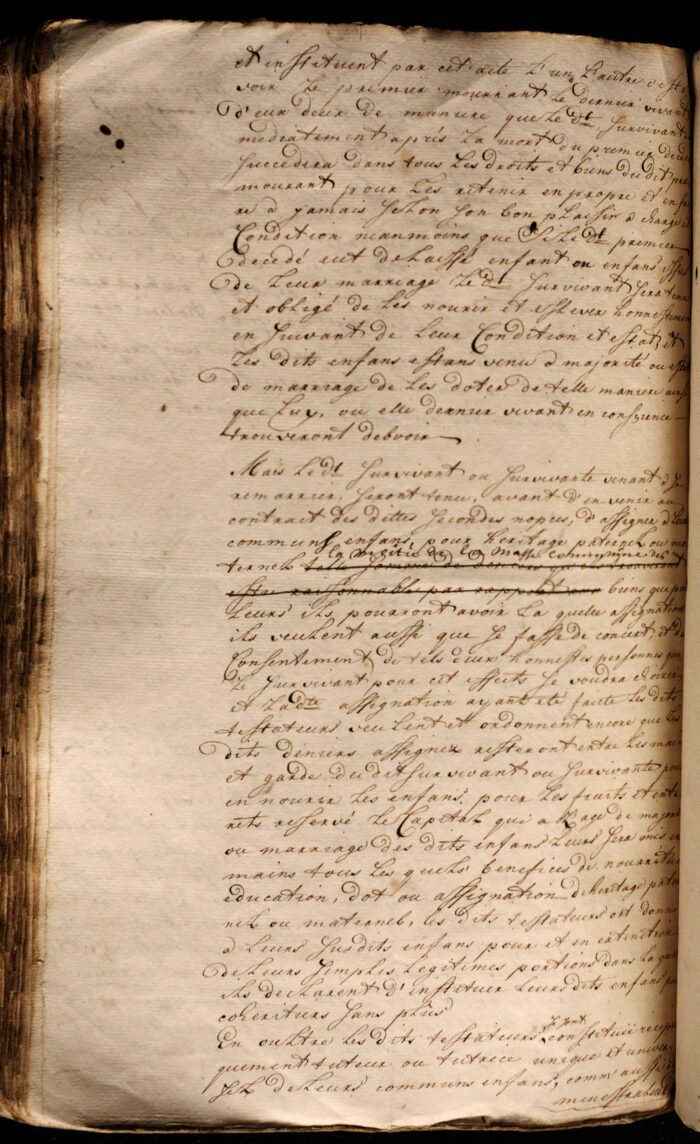 et instituent par cet acte l'un l'autre
voir le premier mourrant le dernier vivant
d'eux deux de maniere que le dt. survivant
mediatement aprés la mort du premier
succedera dans tous les droits et biens du dit
mourant pour les retenir en propre et en
re a jamais selon son bon plaisir a charge
Condition neanmoins que Si le dt. premier
decedé eut delaissé enfant ou enfans issus
de leur marriage le dt. survivant sera
et obligé de les nourir et eslever honnestement
en suivant de leur Condition et estat, et
les dits enfans estans venu a majorité ou
de marriage de les doter de telle maniere
que luy, ou elle dernier vivant en conscience
trouveront debvoir
Mais le dt. survivant ou survivante venant a
remarrier, seront tenu, avant d'en venir au
contract des dittes secondes nopces, d'assigner a leurs
communs enfans, pour heritage paternel ou
la moitié de la Masse commune des
ternel telle somme de deniers qu'ils trouveront
estre raisonnable par rapport aux biens que
leurs ils pourront avoir la quelle assignation
ils veulent aussi que se fasse de concert, et
Consentement de tels deux honnestes personnes que
le survivant pour cet effect se voudra choisir
et la dte. assignation ayant eté faite les dits
testateurs veulent et ordonnent encore que les
dits deniers assignez resteront entre les mains
et garde du dit survivant ou survivante pour
en nourir les enfans, pour les fruits et
rets reservé le Capital qui a l'age de
ou marriage des dits enfans leurs sera mis en
mains tous les quels benefices de nourriture
education, dot ou assignation d'heritage
nel ou maternel, les dits testateurs ont
à leurs susdits enfans pour et en extinction
de leurs simples legitimes portions dans la
ils declarent d'instituer leurs dits enfans
coheritiers sans plus
se sont
En oultre les dits testateurs constitué
quement tuteur ou tutrice unique et
sel de leurs communs enfans, comm' aussi